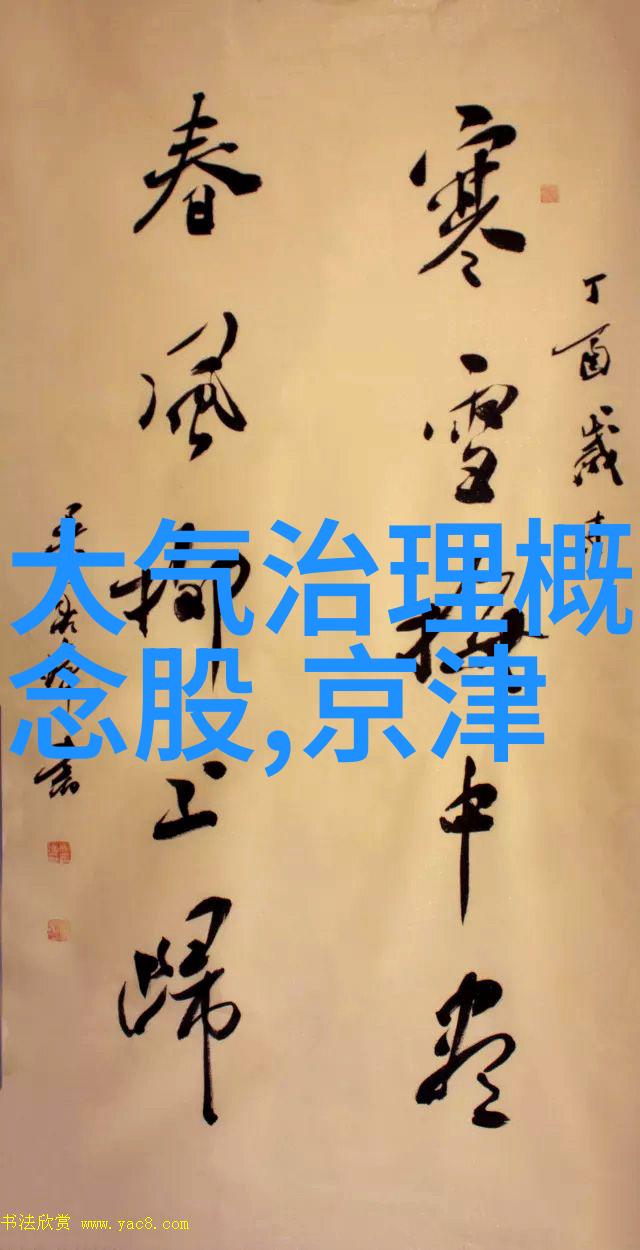 丁酉歲
寒雪梅中盡
春風柳上歸
大气治理概
念股,京津
书法欣赏 www.yac8.com